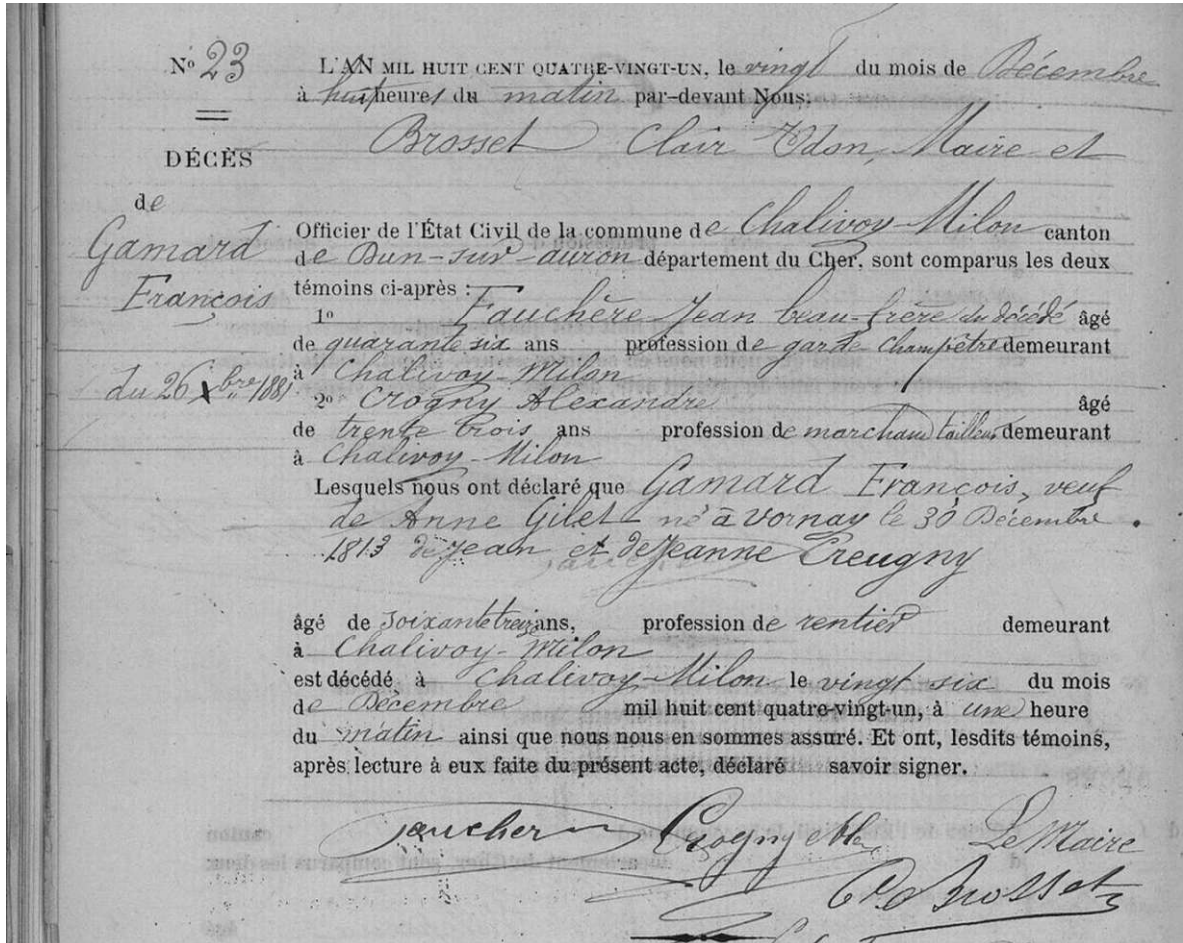 N° 23
L'AN MIL HUIT CENT QUATRE-VINGT-UN, le vingt du mois de Décembre
à huit heures du matin par-devant Nous:
Brosset Clair Odon, Maire et
DÉCÈS
de
Gamard
François
du 26 Xbre 1881
Officier de l'État Civil de la commune de Chalivoy-Milon canton
de Dun-sur-auron département du Cher, sont comparus les deux
témoins ci-après :
1° Fauchère Jean beau-frère du décédé âgé
de quarante six ans profession de garde champêtre demeurant
à Chalivoy-Milon
2° Crogny Alexandre âgé
de trente trois ans profession de marchand tailleur demeurant
à Chalivoy-Milon
Lesquels nous ont déclaré que Gamard François, veuf
de Anne Gilet né à Vornay le 30 Décembre
1813 de Jean et de Jeanne Creugny
âgé de soixante treize ans, profession de rentier demeurant
à Chalivoy-Milon
est décédé à Chalivoy-Milon le vingt six du mois
de Décembre mil huit cent quatre-vingt-un, à une heure
du matin ainsi que nous nous en sommes assuré. Et ont, lesdits témoins,
après lecture à eux faite du présent acte, déclaré savoir signer.
Crogny Le Maire
Brosset